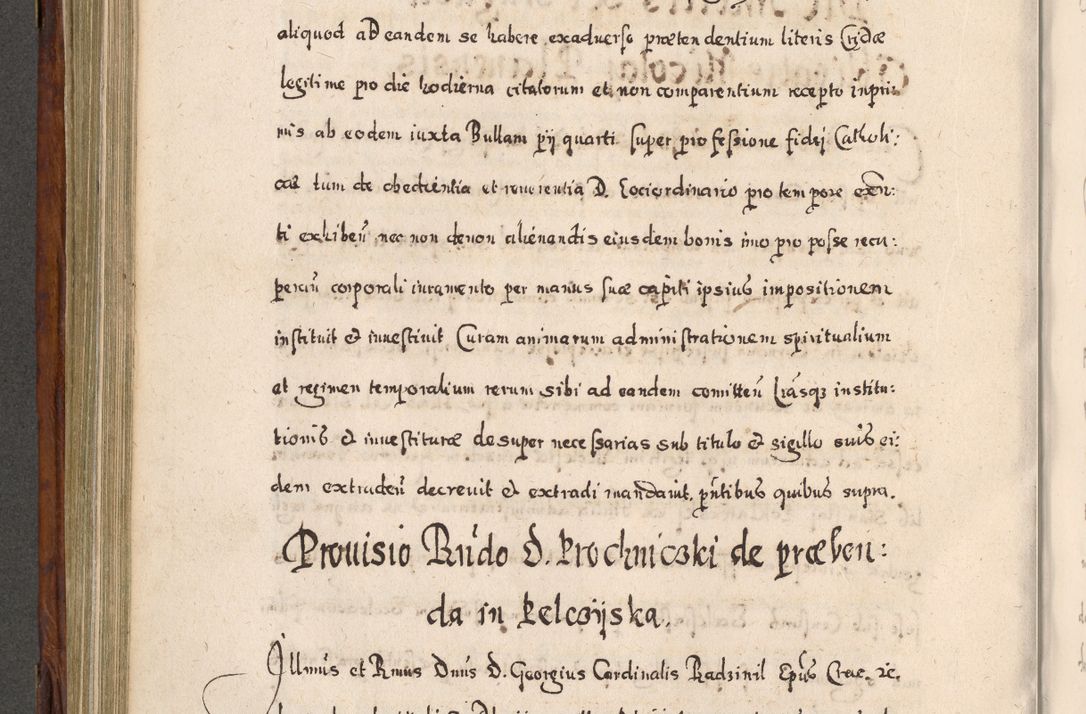 aliquod aD eandem se habere exaduerso prætendentium literis Crdæ
legitime pro die hodierna citatorum et non comparentium recepto inpri:
mis ab eodem iuxta Bullam pij quarti super professione fidej Catholi:
cæ tum de obedientia et reuerentia D. Lociordinario pro tempore exñ:
ti exhibeñ nec non denon alienandis eiusdem bonis imo pro posse recu:
perañ corporali iuramento per manus suæ capiti ipsius impositionem
instituit & inuestiuit Curam animarum administrationem spiritualium
et regimen temporalium rerum sibi ad eandem comitteñ Lrasqz institu:
tionis & inuestituræ desuper necessarias sub titulo & sigillo suis ei:
dem extradeñ decreuit & extradi mandauit. pñtibus quibus supra.
Prouisio Rñdo D. Prochniczki de præben:
da in Kelczijska.
Illmus et Rmus Dnus D. Georgius Cardinalis Radziuil Epus Crac. zc.